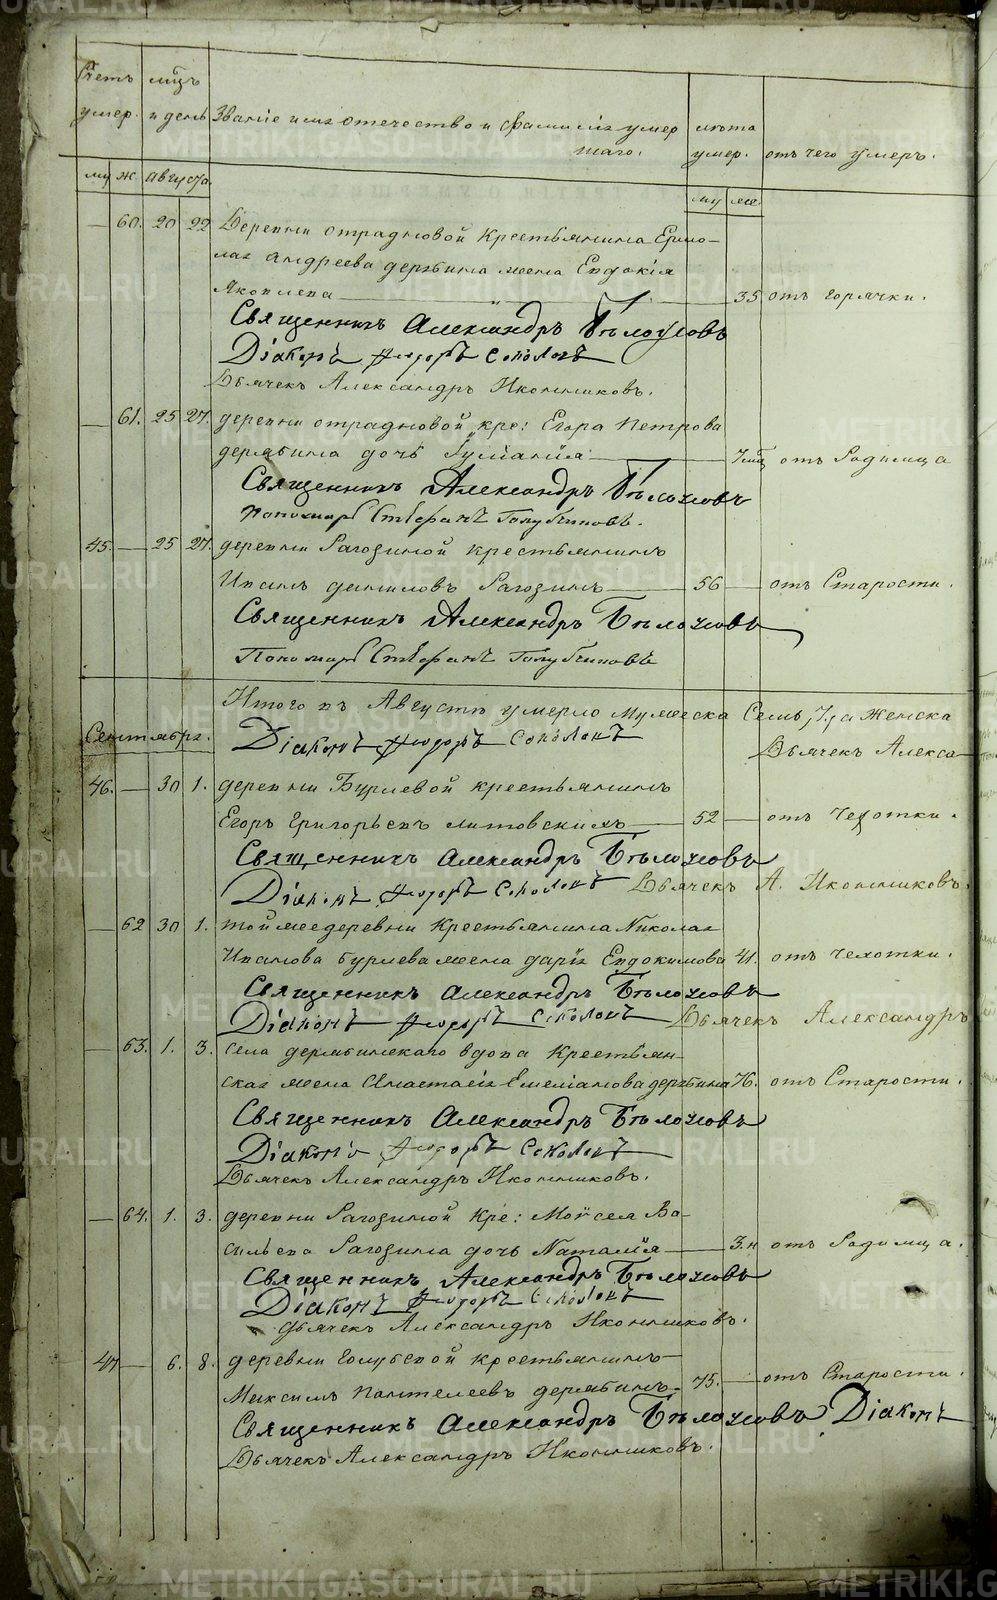 Счетъ умер.
мцъ и день
Званіе имя отечество и фамилія умер
шаго.
лѣта умер.
отъ чего умеръ.
му ж. Августа.
му же.
— 60. 20 22 Деревни отрадновой крестьянина Ермо-
лая Андреева дерябина жена Евдокія
Яковлева 35 отъ горячки.
Священникъ Александръ Бѣлоусовъ
Діаконъ Федоръ Соколовъ
Дьячекъ Александръ Иконниковъ.
— 61. 25 27. деревни отрадновой кре: Егора Петрова
дерябина дочь 7 мцъ отъ Родимца
Священникъ Александръ Бѣлоусовъ
пономарь Стефанъ Голубчиковъ.
45. — 25 27. деревни Рагозиной крестьянинъ
Иванъ даниловъ Рагозинъ 56 — отъ Старости.
Священникъ Александръ Бѣлоусовъ
Пономарь Стефанъ Голубчиковъ
Итого въ Августѣ умерло мужеска Семь, 7, а Женска
Сентябрь.
Діаконъ Федоръ Соколовъ Дьячекъ Алекса
46. — 30 1. деревни Бурлевой крестьянинъ
Егоръ Григорьевъ литовскихъ 52 — отъ Чехотки.
Священникъ Александръ Бѣлоусовъ
Діаконъ Федоръ Соколовъ Дьячекъ А. Иконниковъ.
— 62 30 1. той же деревни Крестьянина Николая
Иванова бурлева жена дарія Евдокимова 41. отъ чехотки.
Священникъ Александръ Бѣлоусовъ
Діаконъ Федоръ Соколовъ Дьячекъ Александръ
— 63. 1. 3. Села дерябинскаго вдова Крестьян-
ская жена Анастасія Емеліанова дерябина 76. отъ Старости.
Священникъ Александръ Бѣлоусовъ
Діаконъ Федоръ Соколовъ
Дьячекъ Александръ Иконниковъ.
— 64. 1. 3. деревни Рагозиной Кре: Моѵсея Ва-
сильева Рагозина дочь Наталія 3. н отъ Родимца.
Священникъ Александръ Бѣлоусовъ
Діаконъ Федоръ Соколовъ
Дьячекъ Александръ Иконниковъ.
47 — 6. 8. деревни Голубской крестьянинъ
Максимъ Пантелеевъ дерябинъ 75. — отъ Старости.
Священникъ Александръ Бѣлоусовъ Діаконъ
Дьячекъ Александръ Иконниковъ.
METRIKI.GASO-URAL.RU